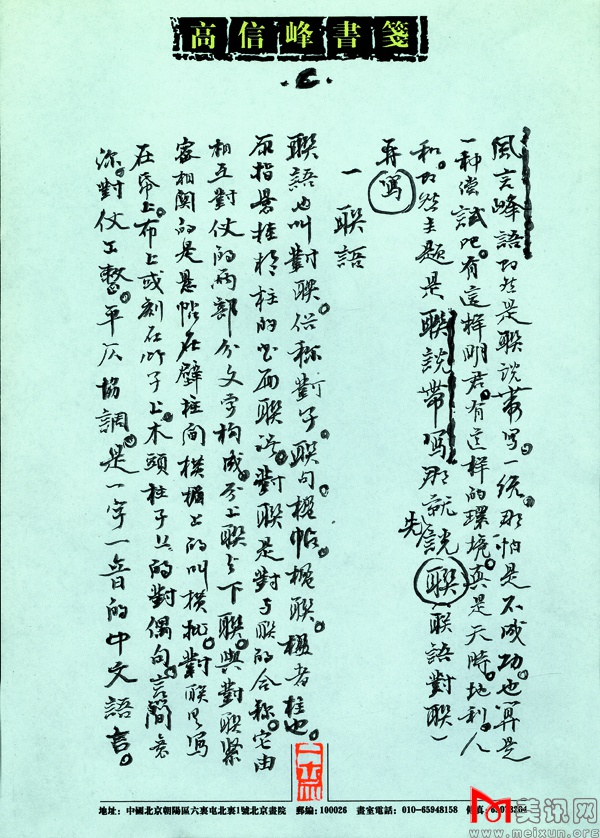 高信峰書箋
風言峰語既然是聯說帶寫一统。那怕是不成功。也算是
一种尝試吧。有這样明君。有这样的環境。真是天時。地利。人
和。既然主題是聯說帶寫那就先說聯（聯語對聯）
再寫
一 聯語
聯語也叫對聯。俗称對子。聯句。楹帖。楹聯。楹者柱也。
原指悬挂楹柱的书面聯语。對聯是對与聯的合称。它由
相互對仗的两部分文字构成。分上聯与下聯。與對聯緊
密相関的是悬帖在壁柱间横楣上的叫横批。對联是写
在帛上。布上或刻在竹子上。木頭柱子上的對偶句。言簡意
深。對仗工整。平仄協調。是一字一音的中文語言。
地址：中國北京朝陽區六裏屯北裏1號北京畫院 郵編:100026 畫室電話：010-65948158 傳真
美讯网
www.meixun.org